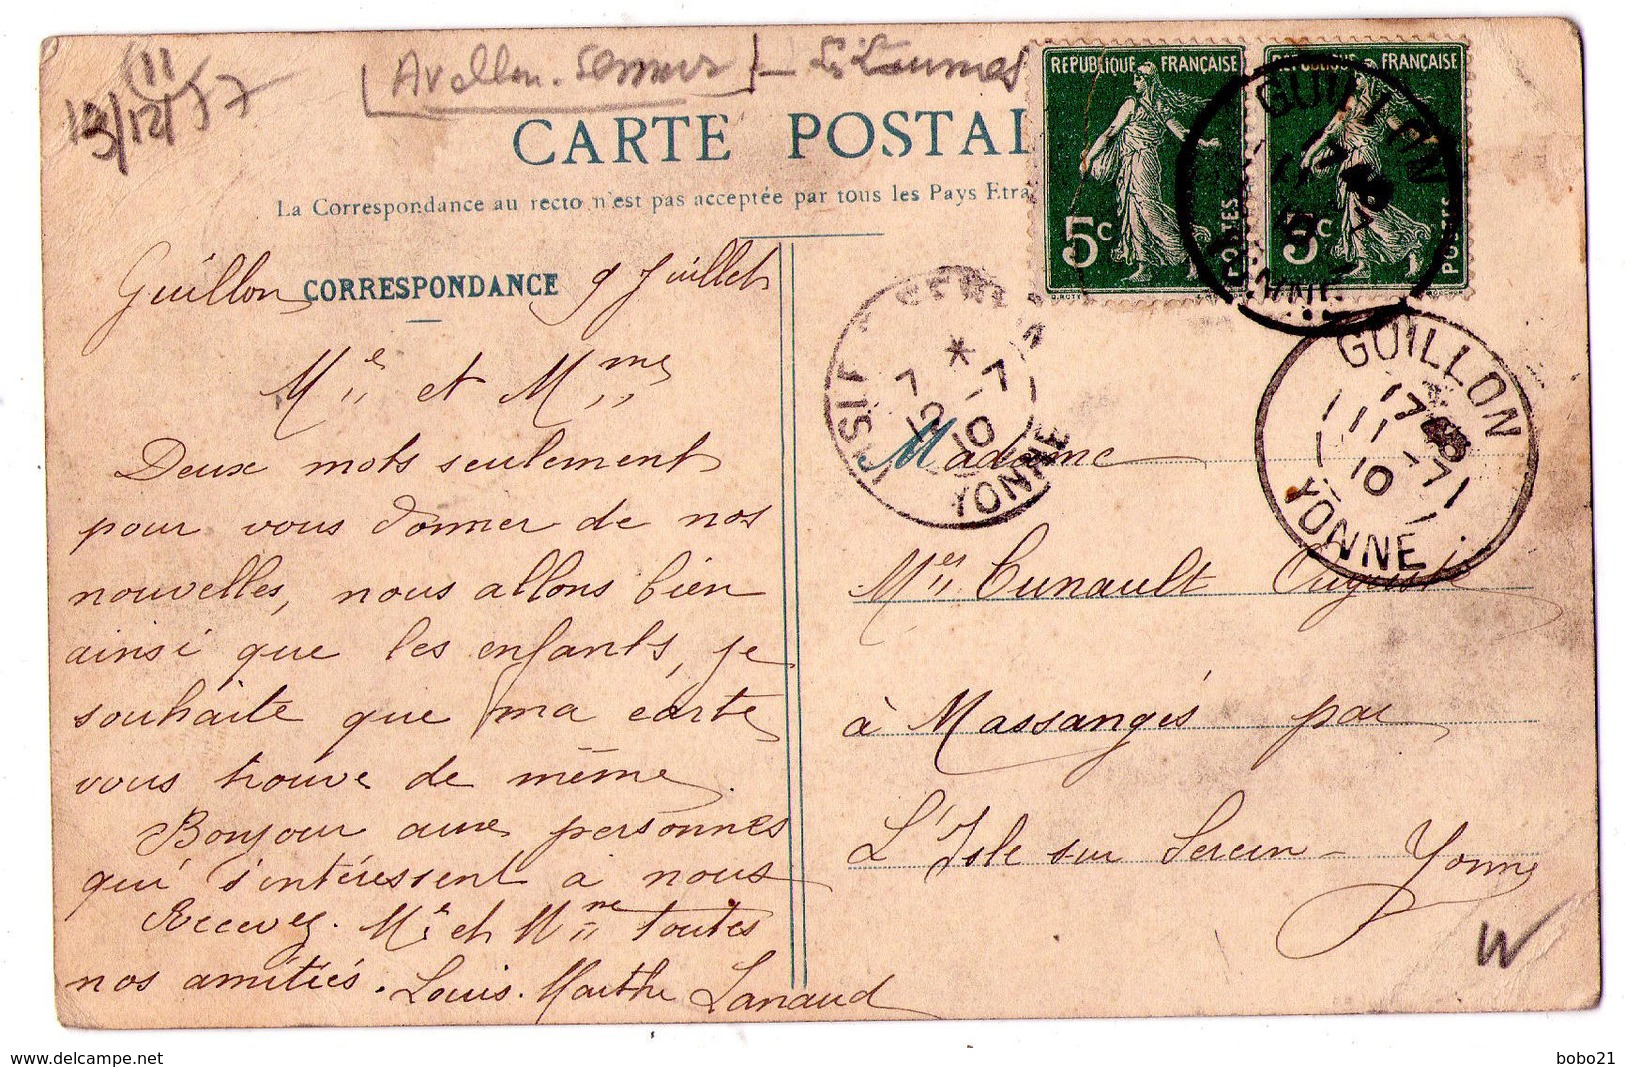 (11
13/12/57
[Avallon. Semur] - Les Laumes
CARTE POSTAL
La Correspondance au recto n'est pas acceptée par tous les Pays Etra
REPUBLIQUE FRANÇAISE
5c
POSTES
REPUBLIQUE FRANÇAISE
5c
POSTES
GUILLON
YONNE
GUILLON
17
11-7
10
YONNE
7
12-7
10
YONNE
CORRESPONDANCE
Guillon 9 Juillet
Mr et Mme
Deux mots seulement
pour vous donner de nos
nouvelles, nous allons bien
ainsi que les enfants, je
souhaite que ma carte
vous trouve de même.
Bonjour aux personnes
qui s'intéressent à nous
Recevez. Mr et Mme toutes
nos amitiés. Louis. Marthe Lanaud
Madame
Cunault Auguste
à Massangis par
L'Isle sur Serein - Yonne
W
delcampe.net
bobo21